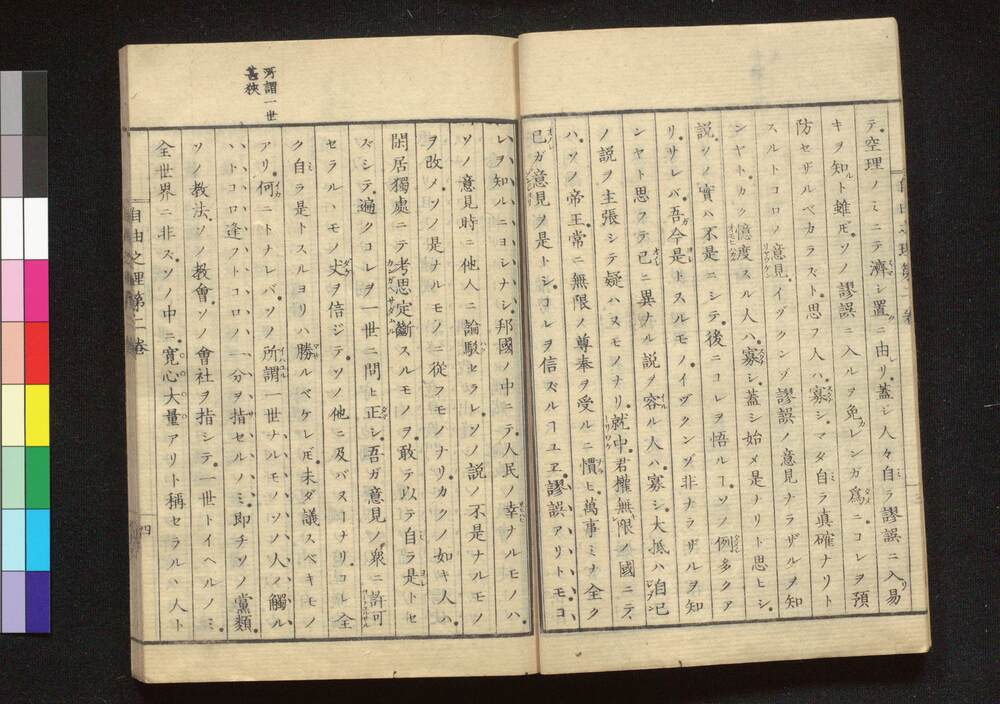 テ空理ノミニテ濟シ置ニ由リ。蓋シ人々自ラ謬誤ニ入リ易
キヲ知ルト雖ドモ。ソノ謬誤ニ入ルヲ免レンガ爲ニ。コレヲ預
防セザルベカラズト思フ人ハ。寡シ。マタ自ラ真確ナリト
スルトコロノ意見。イヅクンゾ謬誤ノ意見ナラザルヲ知
ンヤト。カク憶度スル人ハ。寡シ。蓋シ始メ是ナリト思ヒシ
説。ソノ實ハ不是ニシテ。後ニコレヲ悟ルヿ。ソノ例多クア
リ。サレバ吾今是トスルモノ。イヅクンゾ非ナラザルヲ知
ンヤト思フテ。已ニ異ナル説ヲ容ル人ハ。寡シ。大抵ハ自已
ノ説ヲ主張シテ疑ハヌモノナリ。就中君權無限ノ國ニテ
ハ。ソノ帝王。常ニ無限ノ尊奉ヲ受ルニ慣ヒ。萬事ミナ全ク
已ガ意見ヲ是トシ。コレヲ信ズルヿユヱ。謬誤アリトモ。コ
レヲ知ルニヨシナシ。邦國ノ中ニテ。人民ノ幸ナルモノハ。
ソノ意見時ニ他人ニ論駁セラレ。ソノ説ノ不是ナルモノ
ヲ改メ。ソノ是ナルモノニ從フモノナリ。カクノ如キ人ハ。
閑居獨處ニテ考思定斷スルモノヲ。敢テ以テ自ラ是トセ
ズシテ。遍クコレヲ一世ニ問ヒ正シ。吾ガ意見ノ衆ニ許可
セラル丶モノ丈ヲ信ジテ。ソノ他ニ及バヌヿナリ。コレ全
ク自ラ是トスルヨリハ勝ルベケレドモ。未ダ議スベキモノ
アリ。何ニトナレバ。ソノ所謂一世ナルモノハ。ソノ人ノ觸ル
ハトコロ逢フトコロノ。一分ヲ指セルノミ。即チソノ黨類。
ソノ教法。ソノ教會。ソノ會社ヲ指シテ。一世トイヘルノミ。
全世界ニ非ズ。ソノ中ニ。寬心大量アリト稱セラル丶人ト
所謂一世
甚狹
自由之理第二卷
四